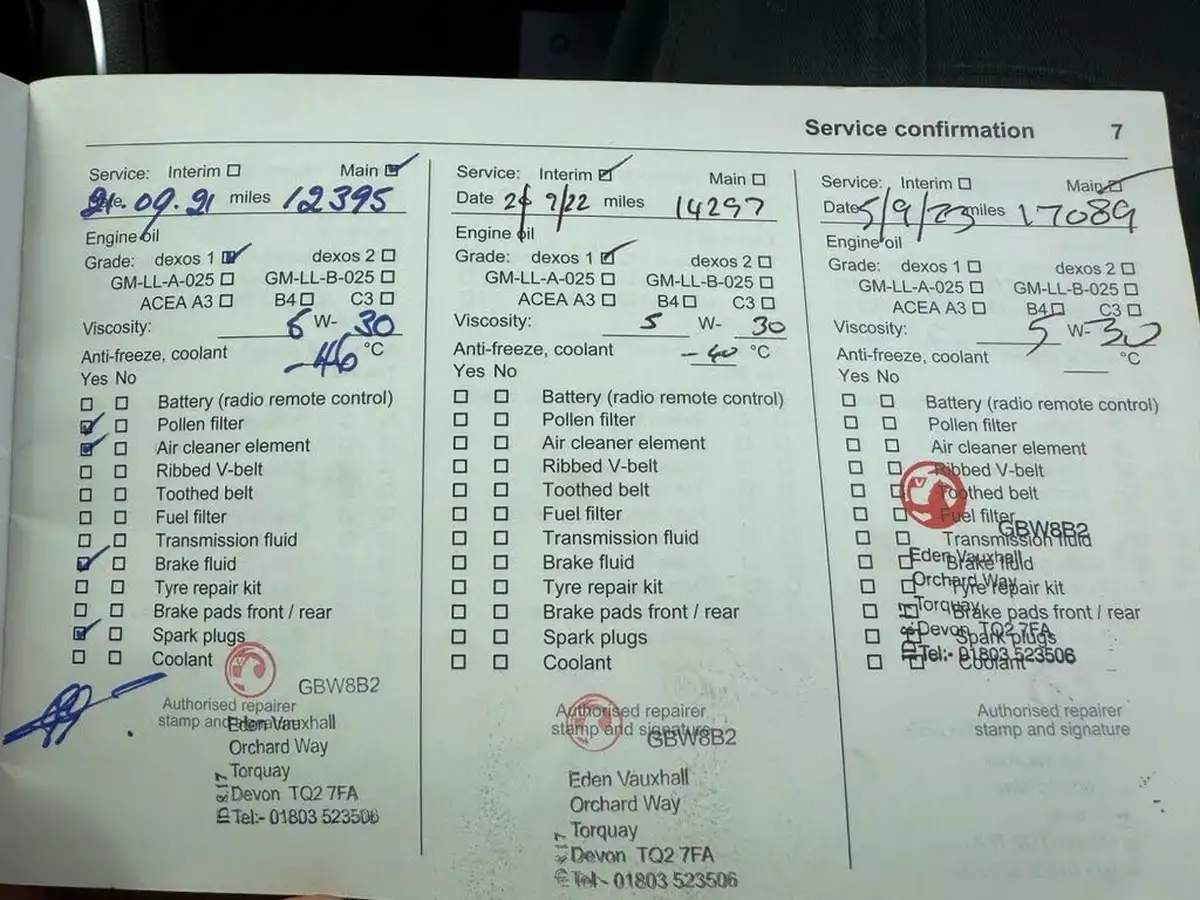 Service confirmation 7
Service: Interim ☐ Main ☑
21.09.21 miles 12395
Engine oil
Grade: dexos 1 ☑ dexos 2 ☐
GM-LL-A-025 ☐ GM-LL-B-025 ☐
ACEA A3 ☐ B4 ☐ C3 ☐
Viscosity: 5 W- 30
Anti-freeze, coolant -46 °C
Yes No
☐ ☐ Battery (radio remote control)
☑ ☐ Pollen filter
☑ ☐ Air cleaner element
☐ ☐ Ribbed V-belt
☐ ☐ Toothed belt
☐ ☐ Fuel filter
☐ ☐ Transmission fluid
☑ ☐ Brake fluid
☐ ☐ Tyre repair kit
☐ ☐ Brake pads front / rear
☑ ☐ Spark plugs
☐ ☐ Coolant
GBW8B2
Authorised repairer
stamp and signature
Eden Vauxhall
Orchard Way
Torquay
Devon TQ2 7FA
Tel:- 01803 523506
Service: Interim ☑ Main ☐
Date /22 miles 14297
Engine oil
Grade: dexos 1 ☑ dexos 2 ☐
GM-LL-A-025 ☐ GM-LL-B-025 ☐
ACEA A3 ☐ B4 ☐ C3 ☐
Viscosity: 5 W- 30
Anti-freeze, coolant -40 °C
Yes No
☐ ☐ Battery (radio remote control)
☐ ☐ Pollen filter
☐ ☐ Air cleaner element
☐ ☐ Ribbed V-belt
☐ ☐ Toothed belt
☐ ☐ Fuel filter
☐ ☐ Transmission fluid
☐ ☐ Brake fluid
☐ ☐ Tyre repair kit
☐ ☐ Brake pads front / rear
☐ ☐ Spark plugs
☐ ☐ Coolant
Authorised repairer
stamp and signature
GBW8B2
Eden Vauxhall
Orchard Way
Torquay
Devon TQ2 7FA
Tel:- 01803 523506
Service: Interim ☐ Main ☑
Date 5/9/23 miles 17089
Engine oil
Grade: dexos 1 ☐ dexos 2 ☐
GM-LL-A-025 ☐ GM-LL-B-025 ☐
ACEA A3 ☐ B4 ☐ C3 ☐
Viscosity: 5 W- 30
Anti-freeze, coolant °C
Yes No
☐ ☐ Battery (radio remote control)
☐ ☐ Pollen filter
☐ ☐ Air cleaner element
☐ ☐ Ribbed V-belt
☐ ☐ Toothed belt
☐ ☐ Fuel filter
GBW8B2
☐ ☐ Transmission fluid
Eden Vauxhall
☐ ☐ Brake fluid
Orchard Way
☐ ☐ Tyre repair kit
Torquay
☐ ☐ Brake pads front / rear
Devon TQ2 7FA
☐ ☐ Spark plugs
Tel:- 01803 523506
☐ ☐ Coolant
Authorised repairer
stamp and signature